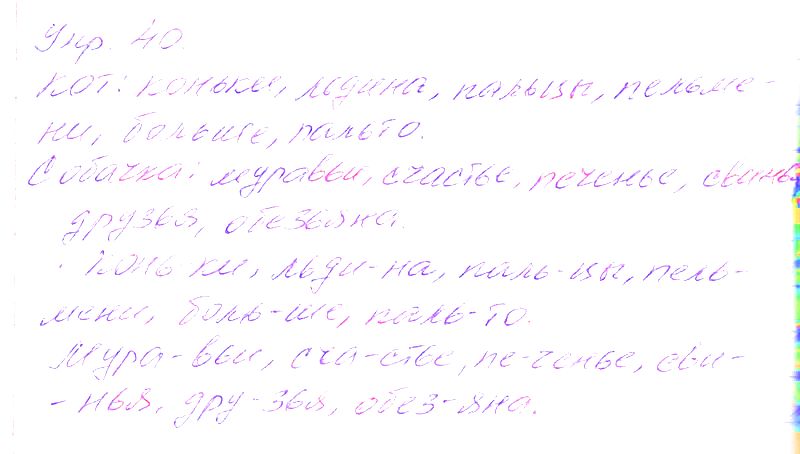 Упр. 40.
Кот: коньки, льдина, пальцы, пельме-
ни, больше, пальто.
Собачка: муравьи, счастье, печенье, свинья
друзья, обезьяна.
Конь-ки, льди-на, паль-цы, пель-
мени, боль-ше, паль-то.
Мура-вьи, сча-стье, пе-ченье, сви-
-нья, дру-зья, обез-яна.